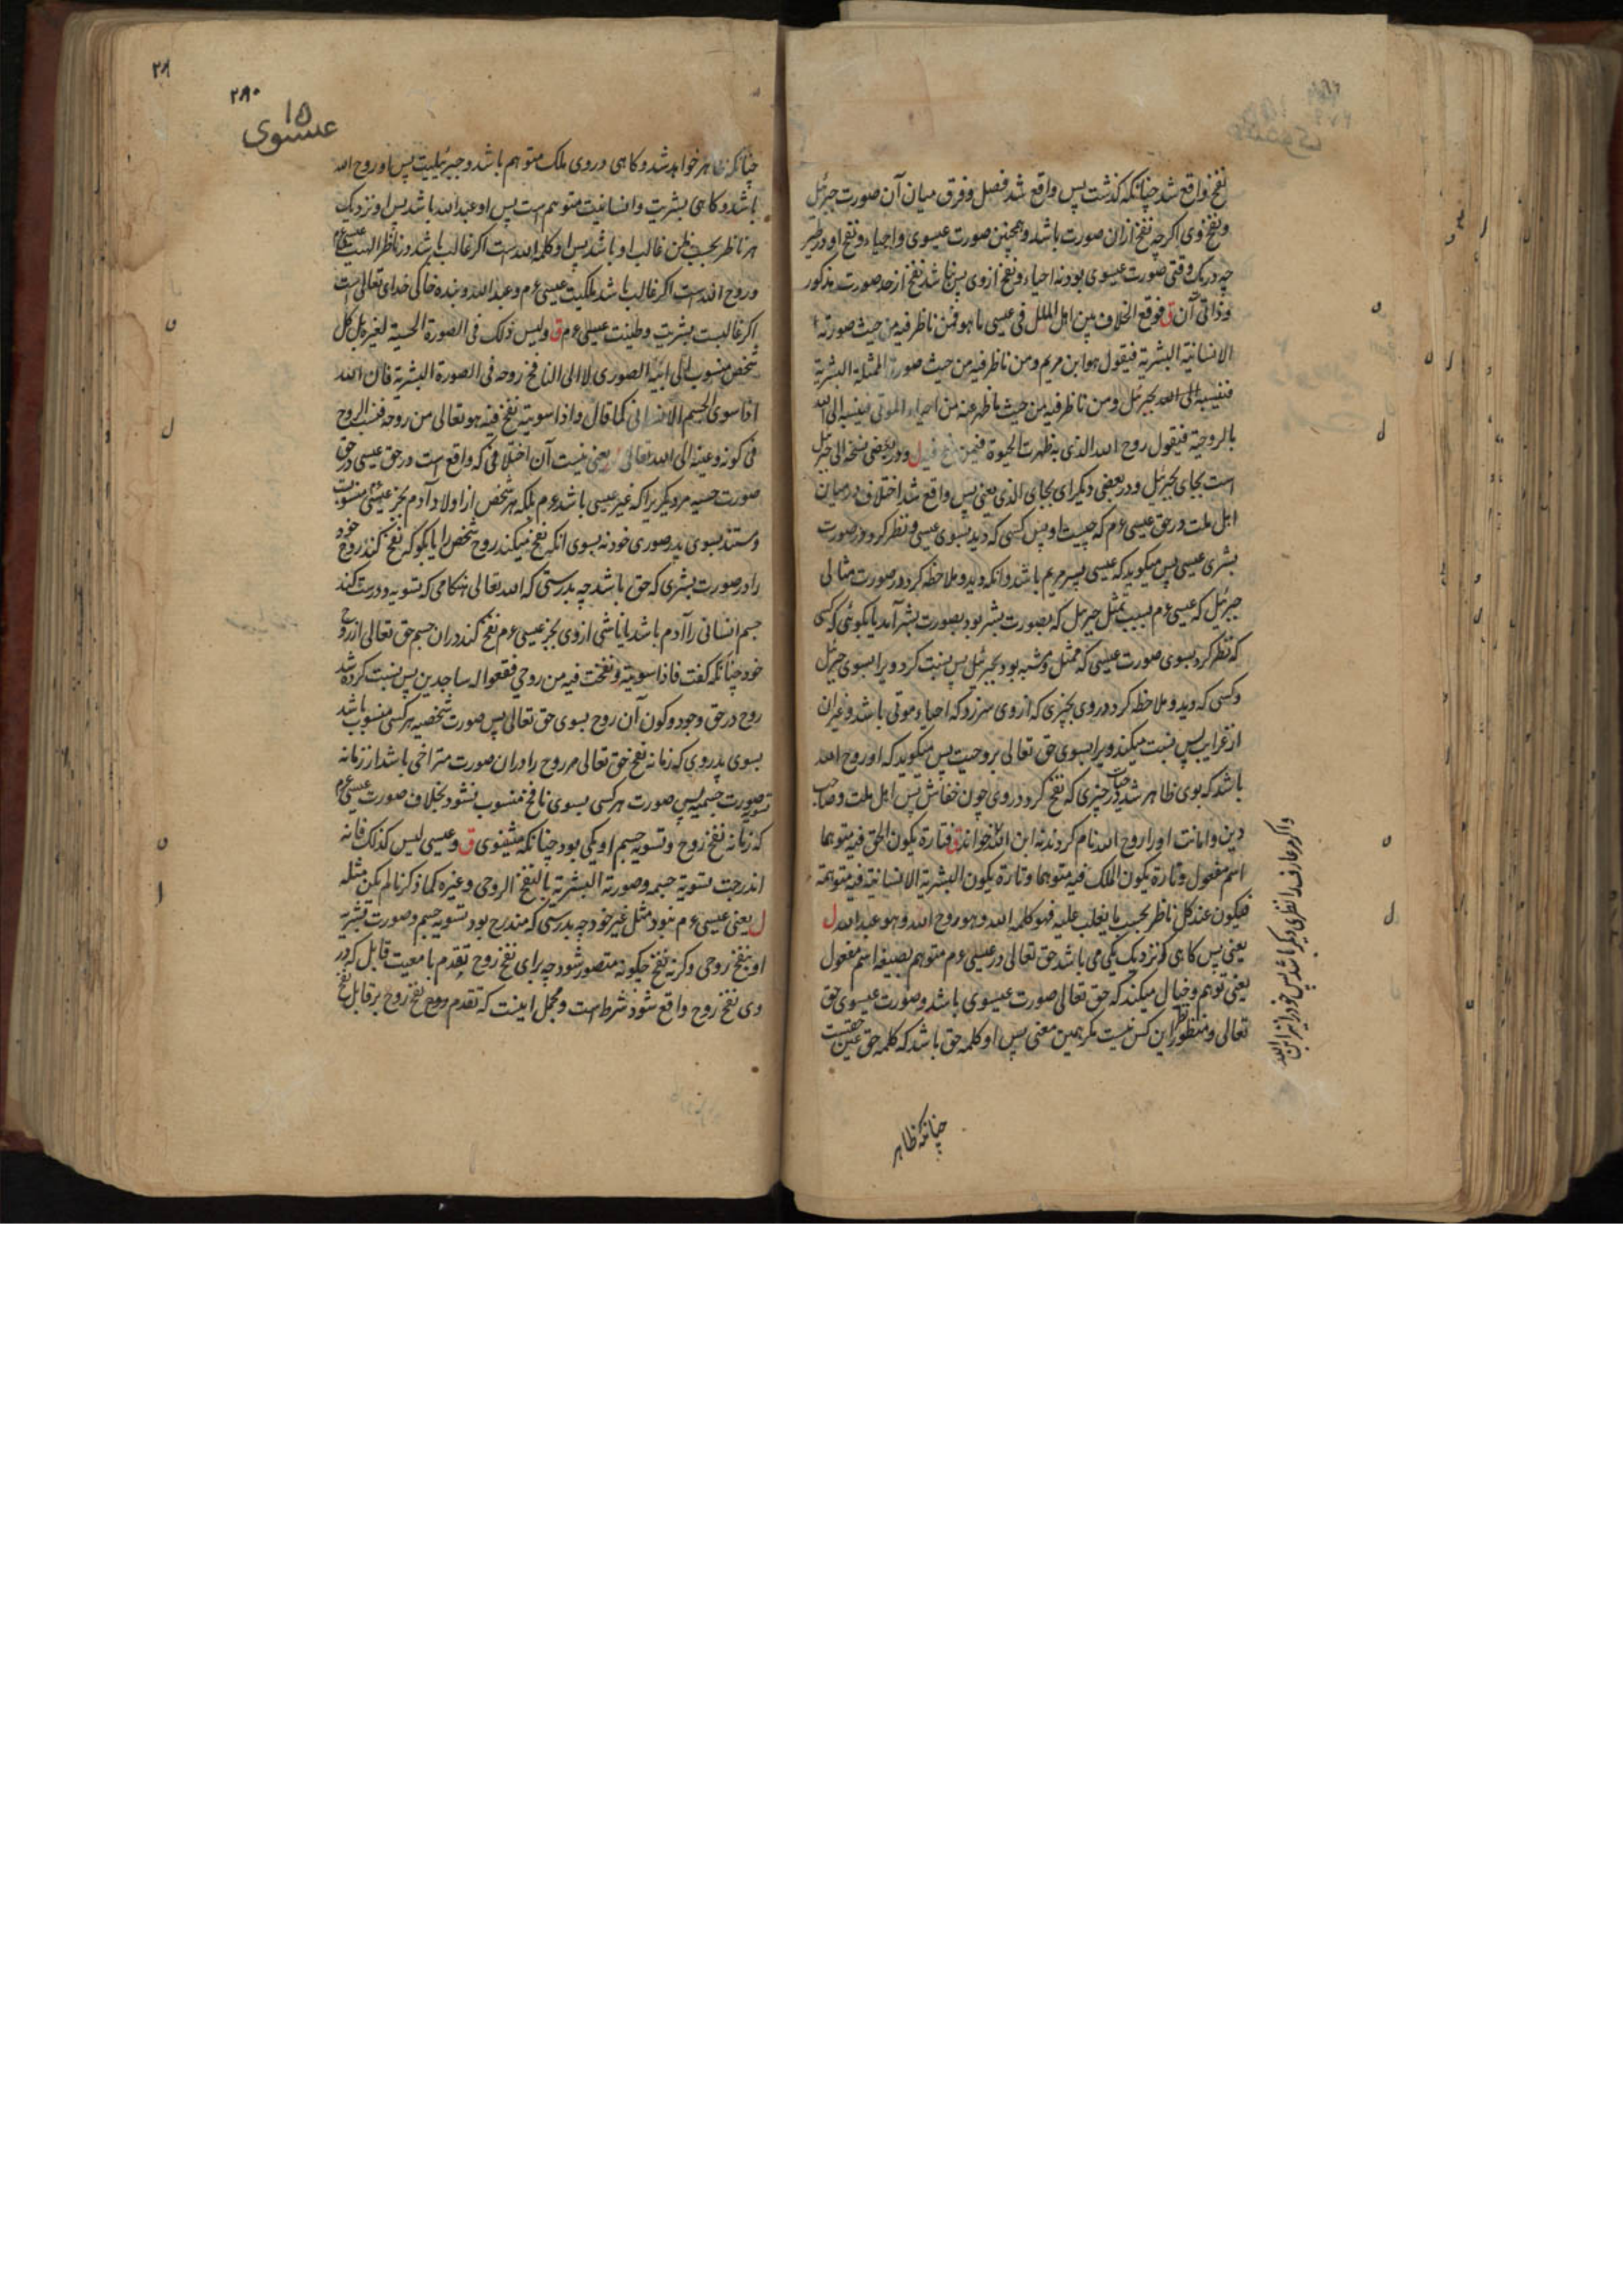 نفخ واقع شد چنانکه کذشت پس واقع شد فصل و فرق میان آن صورت جبرئیل
و نفخ وی اکرچه نفخ ازان صورت باشد و همچنین صورت عیسوی و احیاء و نفخ او در طیر
چه در یک وقتی صورت عیسوی بود نه احیاء و نفخ ازوی پس باشد نفخ از حد صورت مذکور
و ذاتی آن ق فوقع الخلاف بین اهل الملل فی عیسی ما هو فمن ناظر فیه من حیث صورته
الانسانیة البشریة فیقول هو ابن مریم و من ناظر فیه من حیث صورة الممثلة البشریة
فینسبه الی الله بجبرئیل و من ناظر فیه من حیث ما ظهر عنه من احیاء الموتی فینسبه الی الله
بالروحیة فیقول روح الله الذی به ظهرت الحیوة فیمن نفخ فیه ل و در بعضی نسخه الی جبرئیل
است بجای بجبرئیل و در بعضی دیکر ای بجای الذی یعنی پس واقع شد اختلاف درمیان
اهل ملت در حق عیسی ءم که چیست او پس کسی که دید بسوی عیسی و نظر کرد در صورت
بشری عیسی پس میکوید که عیسی پسر مریم باشد و آنکه دید و ملاحظه کرد در صورت مثالی
جبرئیل که عیسی ءم بسبب تمثل جبرئیل که بصورت بشر بود بصورت بشر آمد یا بکوئی کسی
که نظر کرد بسوی صورت عیسی که ممثل و مشبه بود بجبرئیل پس نسبت کرد ویرا بسوی جبرئیل
و کسی که دید و ملاحظه کرد در وی بچیزی که ازوی سرزد که احیاء موتی باشد و غیر ان
از غرایب پس نسبت میکند ویرا بسوی حق تعالی بروحیت پس میکوید که او روح الله
باشد که بوی ظاهر شد حیات در چیزی که نفخ کرد در وی چون خفاش پس اهل ملت و صاحب
دین و امانت او را روح الله نام کردند نه ابن الله خواندند ق فتارة یکون الحق فیه متوهما
اسم مفعول و تارة یکون الملک فیه متوهما و تارة یکون البشریة الانسانیة فیه متوهمة
فیکون عند کل ناظر بحسب ما یغلب علیه فهو کلمة الله و هو روح الله و هو عبد الله ل
یعنی پس کاهی که نزدیک یکی می باشد حق تعالی در عیسی ءم متوهم بصیغه اسم مفعول
یعنی توهم و خیال میکند که حق تعالی صورت عیسوی باشد و صورت عیسوی حق
تعالی و منظور نظر این کس نیست مکر همین معنی پس او کلمه حق باشد که کلمه حق عین حقست
واکر عارف را نظری دیکر باشد پس خود را نیز ابن الله
چنانکه ظاهر
۲۸۰
۱۵
عیسوی
چنانکه ظاهر خواهد شد و کاهی در وی ملک متوهم باشد و جبرئیلیت پس او روح الله
باشد و کاهی بشریت و انسانیت متوهم است پس او عبد الله باشد پس او نزدیک
هر ناظر بحسب ظن غالب او باشد پس او کلمة الله است اکر غالب باشد در ناظر الهیت عیسی ءم
و روح الله است اکر غالب باشد ملکیت عیسی ءم و عبد الله و بنده خاکی خدای تعالی است
اکر غالبست بشریت و طینت عیسی ءم ق و لیس ذلک فی الصورة الحسیة لغیره بل کل
شخص منسوب الی ابیه الصوری لا الی النافخ روحه فی الصورة البشریة فان الله
اذا سوی الجسم الانسانی کما قال و اذا سویته نفخ فیه هو تعالی من روحه فنسب الروح
فی کونه و عینه الی الله تعالی ل یعنی نیست آن اختلافی که واقع است در حق عیسی در حق
صورت حسیه مر دیکریرا که غیر عیسی باشد ءم بلکه هر شخص از اولاد آدم بجز عیسی منسوبست
و مستند بسوی پدر صوری خود نه بسوی انکه نفخ میکند روح شخص را یا بکو که نفخ کند روح خود
را در صورت بشری که حق باشد چه بدرستی که الله تعالی هنکامی که تسویه و درست کند
جسم انسانی را آدم باشد یا ناشی ازوی بجز عیسی ءم نفخ کند دران جسم حق تعالی از روح
خود چنانکه کفت فاذا سویته و نفخت فیه من روحی فقعوا له ساجدین پس نسبت کرده شد
روح در حق وجود و کون آن روح بسوی حق تعالی پس صورت شخصیه هر کسی منسوب باشد
بسوی پدر وی که زمانه نفخ حق تعالی مر روح را دران صورت متراخی باشد از زمانه
تسویه صورت جسمیه پس صورت هر کسی بسوی نافخ منسوب نشود بخلاف صورت عیسی ءم
که زمانه نفخ روح و تسویه جسم او یکی بود چنانکه میفرمود ق و عیسی لیس کذلک فانه
اندرجت تسویة جسمه و صورته البشریة بالنفخ الروحی و غیره کما ذکرنا لم یکن مثله
ل یعنی عیسی ءم نبود مثل غیر خود چه بدرستی که مندرج بود تسویه جسم و صورت بشریه
او بنفخ روحی و کرنه نفخ چکونه متصور شود چه برای نفخ روح تقدم یا معیت قابل که در
وی نفخ روح واقع شود شرط است و مجمل اینست که تقدم روح نفخ روح بر قابل نفخ